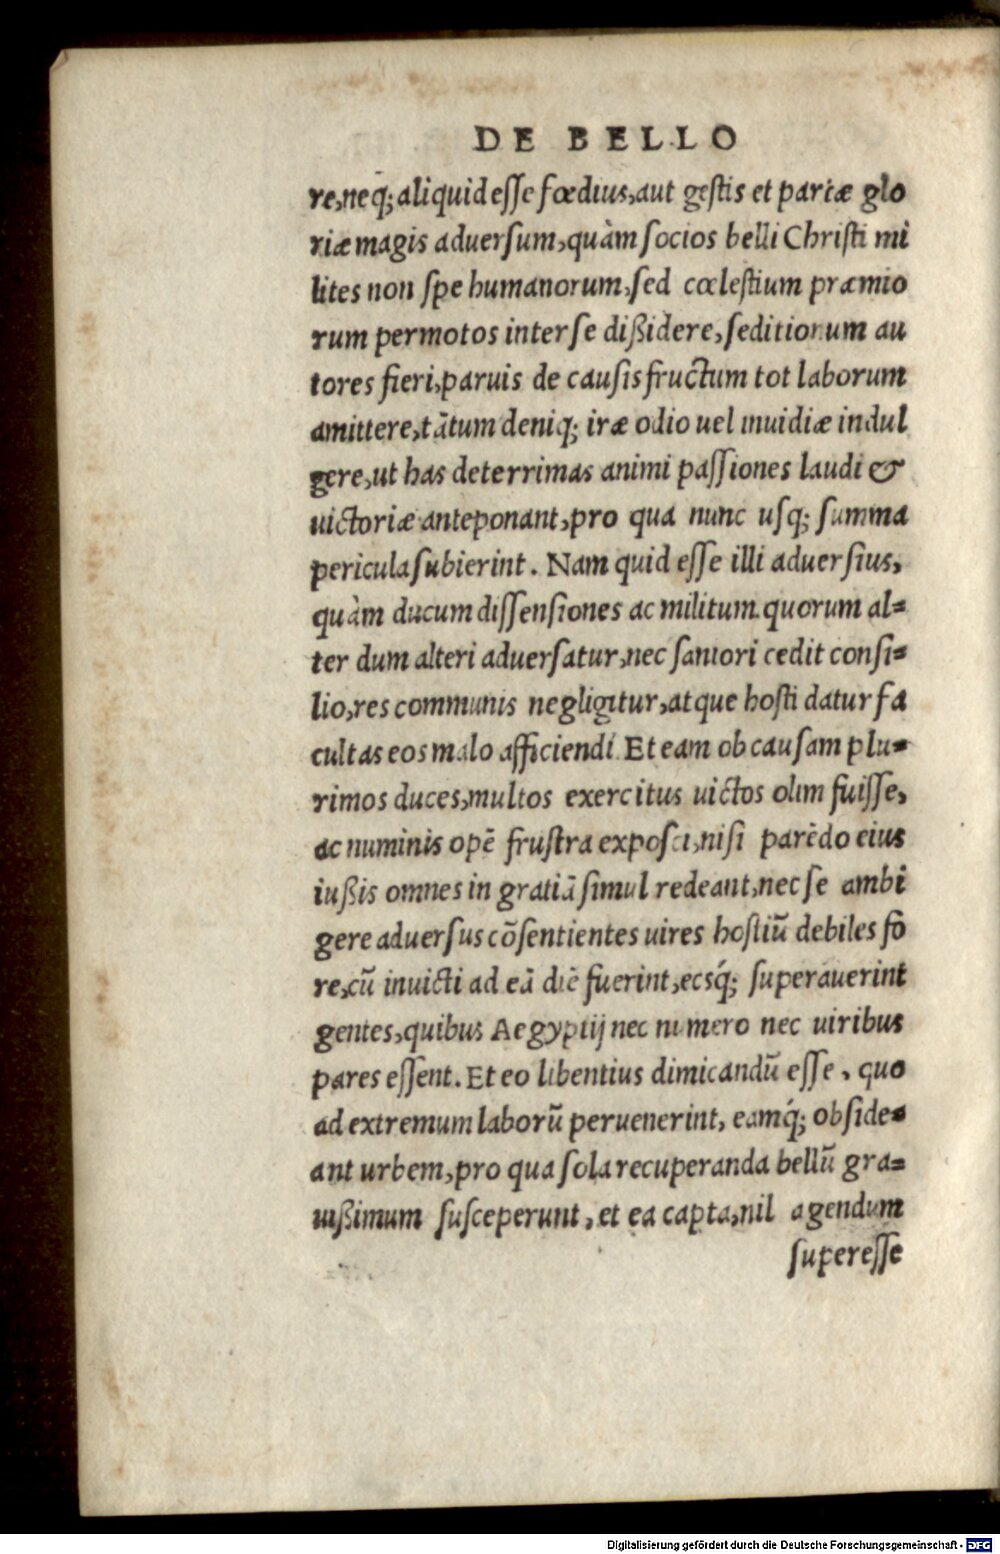 DE BELLO
re,neq́; aliquid esse fœdius,aut gestis et partæ glo
riæ magis aduersum,quàm socios belli Christi mi
lites non spe humanorum,sed cœlestium præmio
rum permotos inter se dißidere,seditionum au
tores fieri,paruis de causis fructum tot laborum
amittere,tātum deniq; iræ odio uel inuidiæ indul
gere,ut has deterrimas animi passiones laudi &
uictoriæ anteponant,pro qua nunc usq; summa
pericula subierint. Nam quid esse illi aduersius,
quàm ducum dissensiones ac militum quorum al=
ter dum alteri aduersatur,nec saniori cedit consi=
lio,res communis negligitur,atque hosti datur fa
cultas eos malo afficiendi. Et eam ob causam plu=
rimos duces,multos exercitus uictos olim fuisse,
ac numinis opē frustra exposci,nisi parēdo eius
iußis omnes in gratiā simul redeant,nec se ambi
gere aduersus cōsentientes uires hostiū debiles fo
re,cū inuicti ad eā diē fuerint,eosq́; superauerint
gentes,quibus Aegyptij nec numero nec uiribus
pares essent. Et eo libentius dimicandū esse, quo
ad extremum laborū peruenerint, eamq́; obside=
ant urbem,pro qua sola recuperanda bellū gra=
uißimum susceperunt, et ea capta,nil agendum
superesse
Digitalisierung gefördert durch die Deutsche Forschungsgemeinschaft - DFG